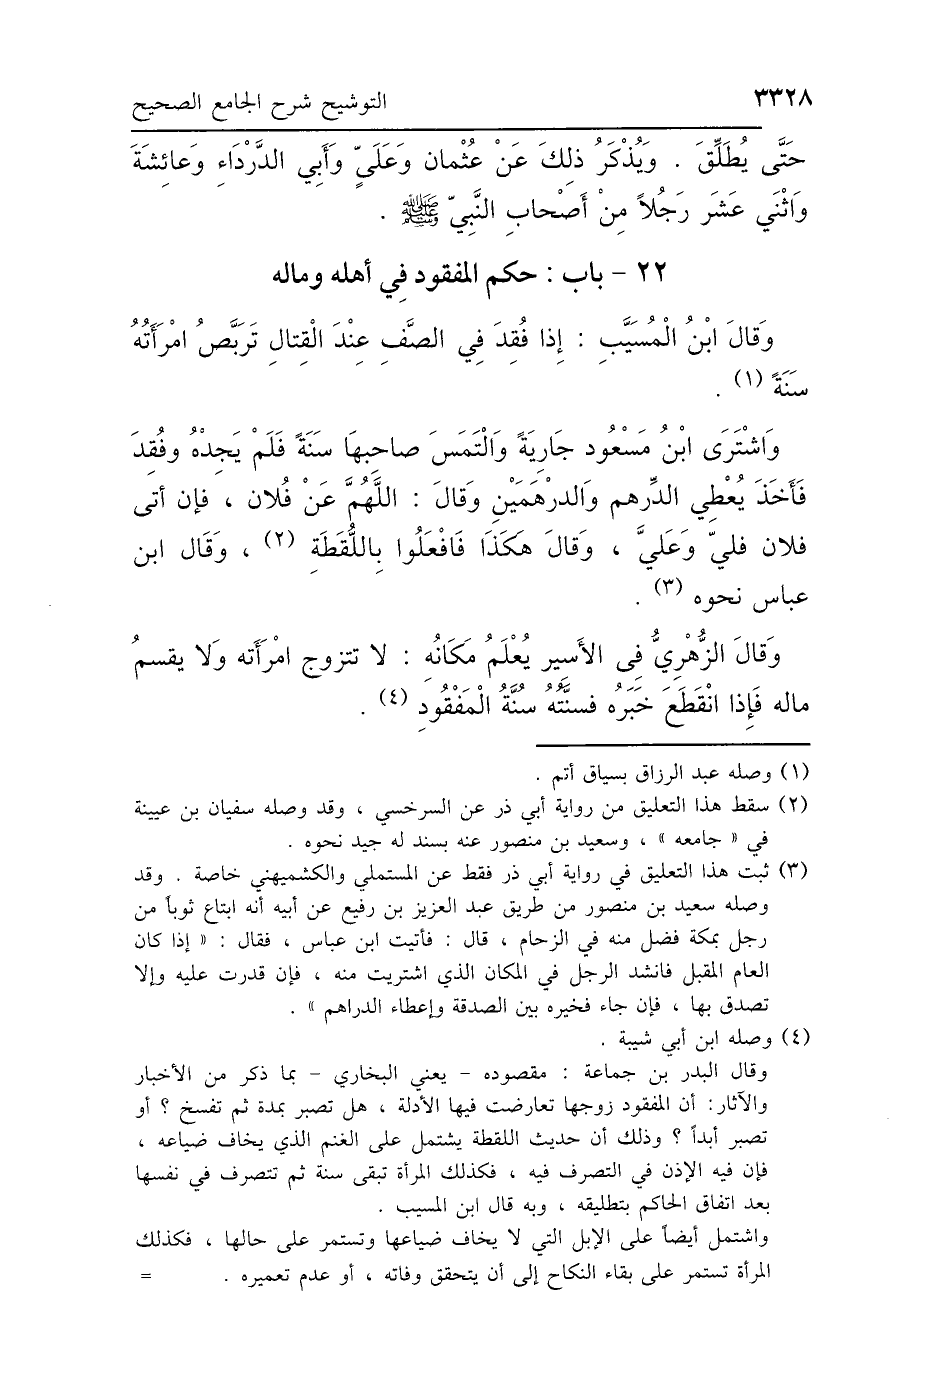 ٣٣٢٨ التوشيح شرح الجامع الصحيح
حَتَّى يُطَلِّقَ . وَيُذْكَرُ ذلِكَ عَنْ عُثْمان وَعَلَيٍّ وأَبي الدَّرْدَاء وَعائشَةَ
وَاثْنَي عَشَر رَجُلاً مِنْ أَصْحابِ النَّبِيّ ﷺ .
٢٢ - باب : حكم المفقود في أهله وماله
وَقالَ ابْنُ الْمُسَيَّبِ : إذا فُقِدَ فِي الصَّفِّ عِنْدَ الْقِتال تَرَبَّصُ امْرَأَتُهُ
سَنَةً (١) .
وَاشْتَرَى ابْنُ مَسْعُود جَارِيَةً وَالْتَمَسَ صاحِبهَا سَنَةً فَلَمْ يَجِدْهُ وفُقِدَ
فَأَخَذَ يُعْطِي الدِّرهم وَالدرْهَمَيْنِ وَقالَ : اللَّهُمَّ عَنْ فُلان ، فإن أتى
فلان فليّ وَعَليَّ ، وَقالَ هكَذَا فَافْعَلُوا بِاللُّقَطَةِ (٢) ، وَقَال ابن
عباس نحوه (٣) .
وَقالَ الزُّهْرِيُّ فِى الأَسير يُعْلَمُ مَكَانُهِ : لا تتزوج امْرأَته وَلا يقسمُ
ماله فَإِذا انْقَطَعَ خَبَرُه فسنَّتُهُ سُنَّةُ الْمَفْقُودِ (٤) .
(١) وصله عبد الرزاق بسياق أتم .
(٢) سقط هذا التعليق من رواية أبي ذر عن السرخسي ، وقد وصله سفيان بن عيينة
في « جامعه » ، وسعيد بن منصور عنه بسند له جيد نحوه .
(٣) ثبت هذا التعليق في رواية أبي ذر فقط عن المستملي والكشميهني خاصة . وقد
وصله سعيد بن منصور من طريق عبد العزيز بن رفيع عن أبيه أنه ابتاع ثوباً من
رجل بمكة فضل منه في الزحام ، قال : فأتيت ابن عباس ، فقال : « إذا كان
العام المقبل فانشد الرجل في المكان الذي اشتريت منه ، فإن قدرت عليه وإلا
تصدق بها ، فإن جاء فخيره بين الصدقة وإعطاء الدراهم » .
(٤) وصله ابن أبي شيبة .
وقال البدر بن جماعة : مقصوده - يعني البخاري - بما ذكر من الأخبار
والآثار: أن المفقود زوجها تعارضت فيها الأدلة ، هل تصبر بمدة ثم تفسخ ؟ أو
تصبر أبداً ؟ وذلك أن حديث اللقطة يشتمل على الغنم الذي يخاف ضياعه ،
فإن فيه الإذن في التصرف فيه ، فكذلك المرأة تبقى سنة ثم تتصرف في نفسها
بعد اتفاق الحاكم بتطليقه ، وبه قال ابن المسيب .
واشتمل أيضاً على الإبل التي لا يخاف ضياعها وتستمر على حالها ، فكذلك
المرأة تستمر على بقاء النكاح إلى أن يتحقق وفاته ، أو عدم تعميره . =